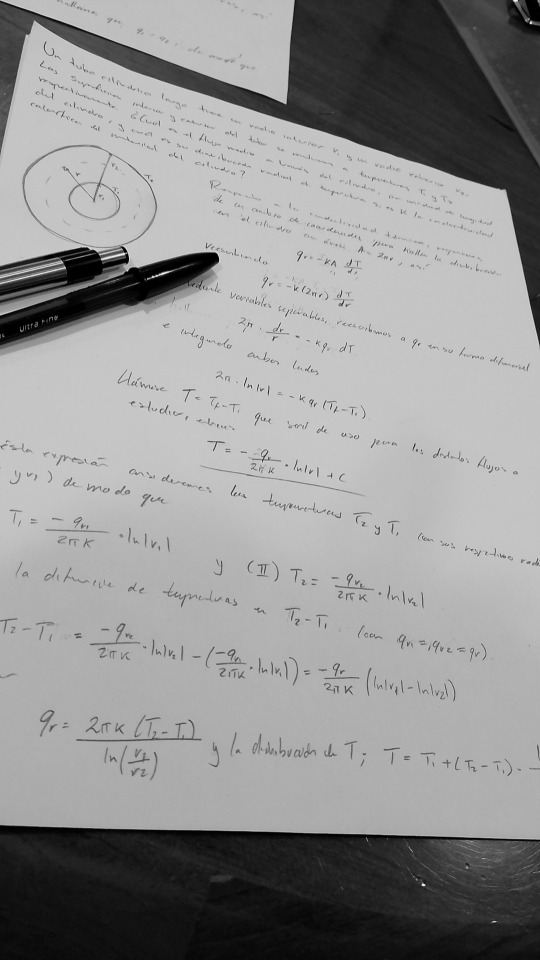 Un tubo cilíndrico largo tiene un radio interior r₁ y un radio exterior r₂.
Las superficies interior y exterior del tubo se mantienen a temperaturas T₁ y T₂
respectivamente ¿Cuál es el flujo medio a través del cilindro, por unidad de longitud
del cilindro, y cuál es su distribución radial de temperatura si es K la conductividad
calorífica del material del cilindro?
r₂
r₁
T₁
T₂
Respecto a la conductividad térmica, requerimos
de un cambio de coordenadas para hallar la distribución
en el cilindro con área A = 2πr, así
qr = -kA dT/dr
Reescribiendo
qr = -k(2πr) dT/dr
variables separables, reescribimos a qr en su forma diferencial
2π · dr/r = -kqr dT
e integrando ambos lados
2π · ln|r| = -kqr (Tf - Ti)
Llámese T = Tf - Ti que será de uso para los distintos flujos a
estudiar,
T = - qr/2πK · ln|r| + C
ésta expresión consideremos las temperaturas T₂ y T₁ con sus respectivos
y r₁) de modo que
T₁ = -qr₁/2πK · ln|r₁|
y (II) T₂ = -qr₂/2πK · ln|r₂|
la diferencia de temperaturas T₂ - T₁ (con qr₁ = qr₂ = qr)
T₂ - T₁ = -qr₂/2πK · ln|r₂| - (-qr₁/2πK · ln|r₁|) = -qr/2πK (ln|r₁| - ln|r₂|)
qr = 2πK (T₂ - T₁)/ln(r₁/r₂) y la distribución de T; T = T₁ + (T₂ - T₁) ·
Ultra Fine